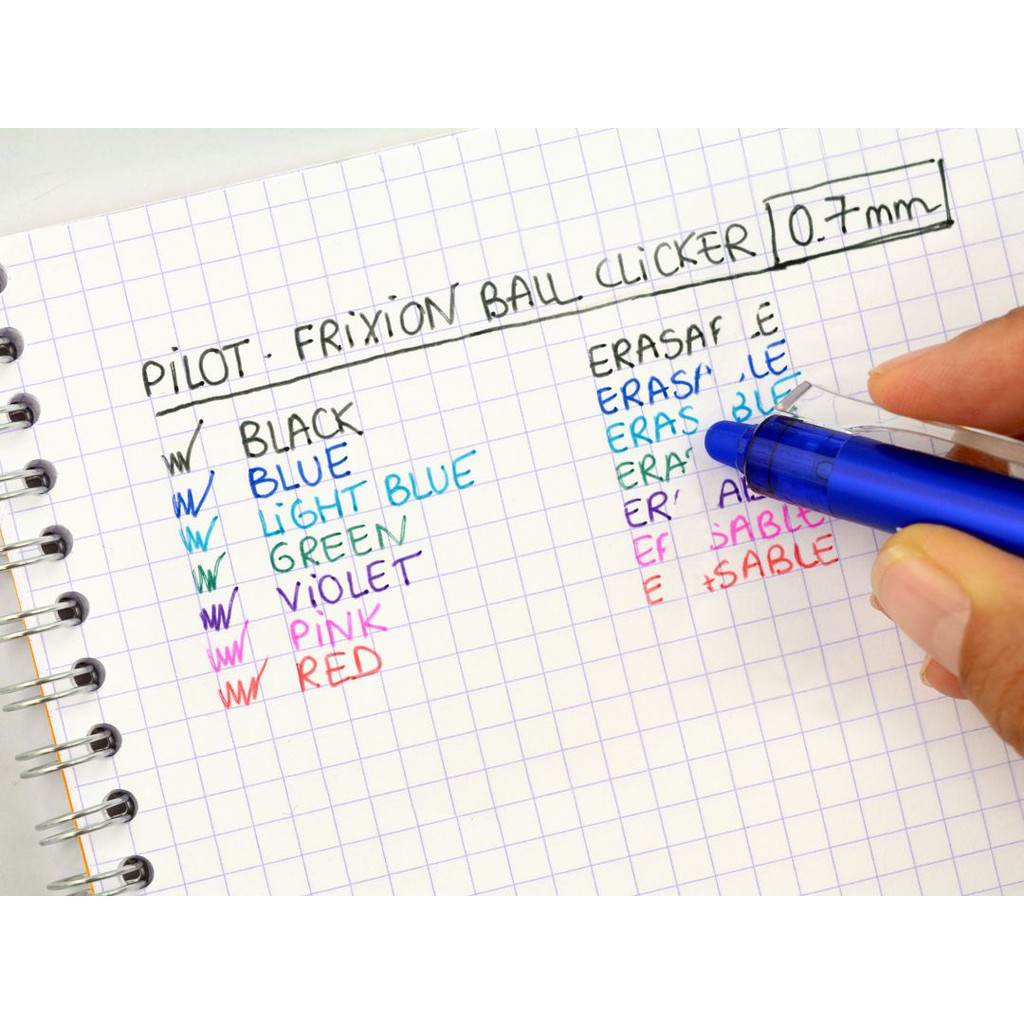 PiLOT. FRiXiON BALL CLiCKER 0.7mm
BLACK
BLUE
LiGHT BLUE
GREEN
ViOLET
PiNK
RED
E
LE
ERAS BLE
ERA
ER AB
SABLE
E SABLE